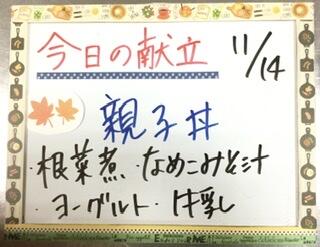 今日の献立 11/14
親子丼
・根菜煮・なめこみそ汁
・ヨーグルト・牛乳